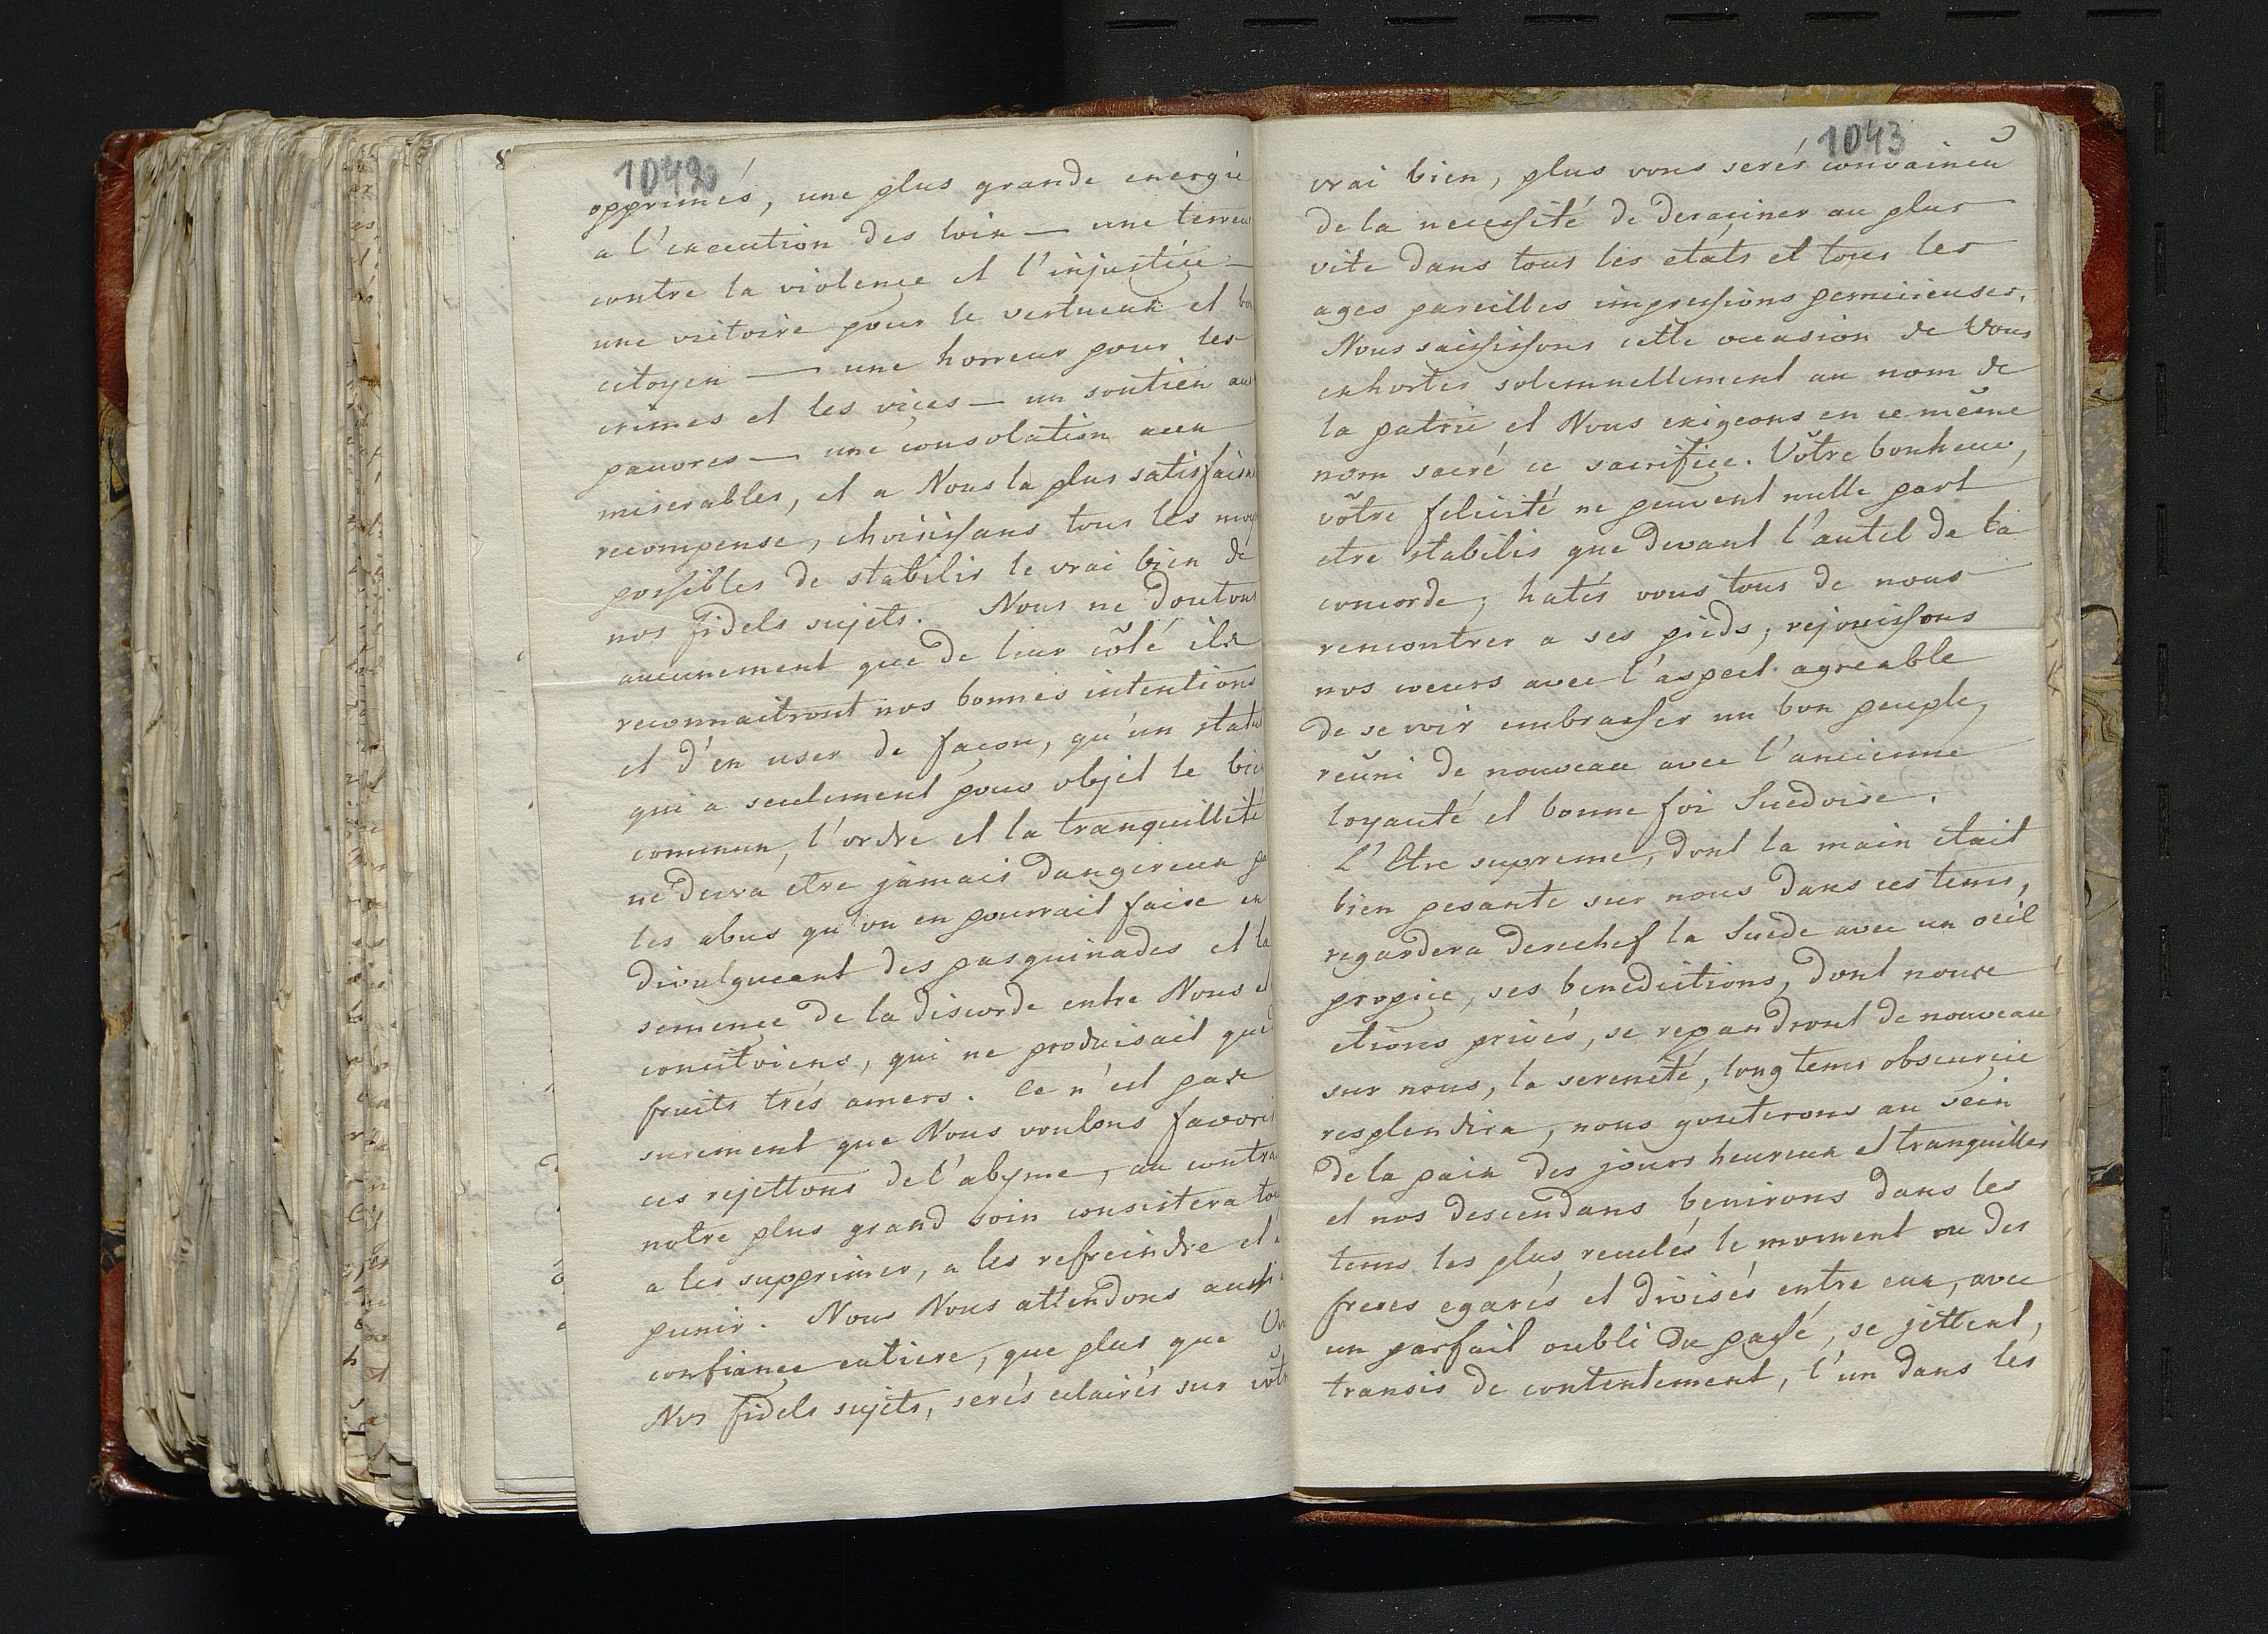 1042
opprimés, une plus grande energie
a l'execution des loix — une terreu
contre la violence et l'injustice —
une victoire pour le vertueux et bo
citoyen — une horreur pour les
crimes et les vices — un soutien aux
pauvres — une consolation aux
miserables, et a Nous la plus satisfaisa
recompense, choisissans tous les moy
possibles de stabilir le vrai bien de
nos fidels sujets. Nous ne doutons
aucunement que de leur côté ils
reconnaitront nos bonnes intentions
et d'en user de façon, qu'un statut
qui a seulement pour objet le bien
commun, l'ordre et la tranquillité
ne devra etre jamais dangereux pa
les abus qu'on en pourrait faire en
divulgueant des pasquinades et la
semence de la discorde entre Nous et
concitoiens, qui ne produisait que
fruits trés amers. Ce n'est pas
surement que Nous voulons favoris
ces rejettons de l'abyme, au contra
notre plus grand soin consistera tou
a les supprimer, a les refreindre et a
punir. Nous Nous attendons aussi
confiance entiere, que plus que Vo
Nos fidels sujets, serés eclairés sur votr
1043
vrai bien, plus vous serés convaincu
de la necessité de deraciner au plus
vite dans tous les etats et tous les
ages pareilles impressions pernicieuses.
Nous saisissons cette occasion de Vous
exhorter solemnellement au nom de
la patrie et Nous exigeons en ce même
nom sacré ce sacrifice. Vôtre bonheur,
vôtre felicité ne peuvent nulle part
etre stabilis que devant l'autel de la
concorde; hatés vous tous de nous
rencontrer a ses pieds, rejouissons
nos coeurs avec l'aspect agreable
de se voir embrasser un bon peuple,
reüni de nouveau avec l'ancienne
loyauté et bonne foi Suedoise.
L'Etre supreme, dont la main etait
bien pesante sur nous dans ces tems,
regardera derechef la Suede avec un oeil
propice, ses benedictions, dont nous
etions privés, se repandront de nouveau
sur nous, la sereneté, longtems obscurcie
resplendira, nous gouterons au sein
de la paix des jours heureux et tranquilles
et nos descendans benirons dans les
tems les plus reculés le moment ou des
freres egarés et divisés entre eux, avec
un parfait oubli du passé, se jettent,
transis de contentement, l'un dans les